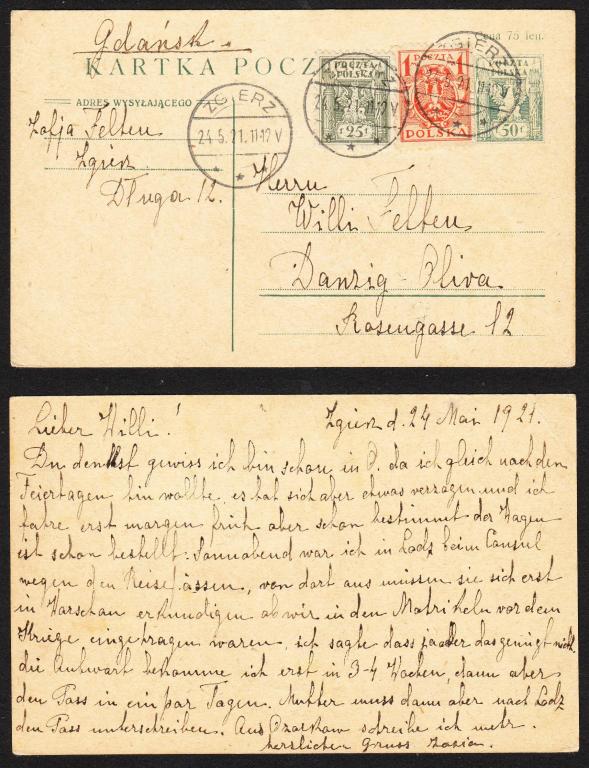 Gdańsk
Cena 75 fen.
KARTKA POCZ
ADRES WYSYŁAJĄCEGO
POCZTA POLSKA
25 f
1 POCZTA 1
POLSKA
POCZTA POLSKA
50 f
ZGIERZ
24.5.21.11-12 V
ZGIERZ
24.5.21.11-12 V
ZGIERZ
24.5.21.11-12 V
Zofja Felten
Zgierz
Długa 12.
Herrn
Willi Felten
Danzig-Oliva
Rosengasse 12
Lieber Willi!
Zgierz d. 24 Mai 1921.
Du denkst gewiss ich bin schon in O. da ich gleich nach den
Feiertagen hin wollte, es hat sich aber etwas verzogen und ich
fahre erst morgen früh aber schon bestimmt der Wagen
ist schon bestellt. Sonnabend war ich in Lodz beim Consul
wegen den Reisepässen, von dort aus müssen sie sich erst
in Warschau erkundigen ob wir in den Matrikeln vor dem
Kriege eingetragen waren, ich sagte dass das genügt nicht.
die Antwort bekomme ich erst in 3-4 Wochen, dann aber
den Pass in ein par Tagen. Mutter muss dann aber nach Lodz
den Pass unterschreiben. Aus Ozorkow schreibe ich mehr.
herzlichen Gruss Zosia.